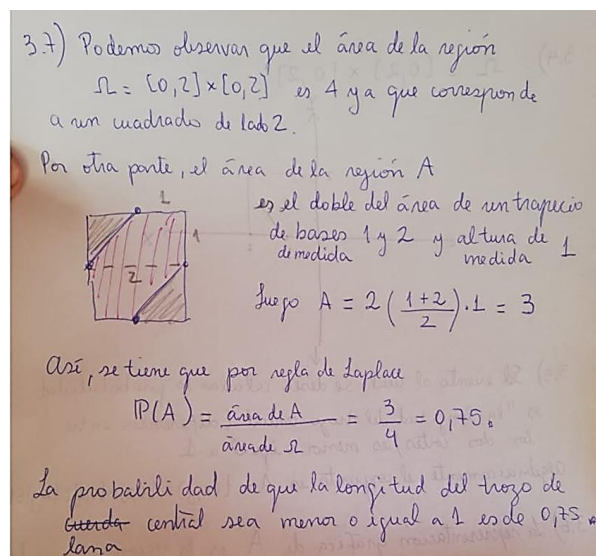 3.7) Podemos observar que el área de la región
Ω = [0,2]×[0,2] es 4 ya que corresponde
a un cuadrado de lado 2.
Por otra parte, el área de la región A
1
1
2
es el doble del área de un trapecio
de bases 1 y 2 y altura de
de medida medida 1
Luego A = 2(1+2/2)·1 = 3
Así, se tiene que por regla de Laplace
P(A) = área de A / área de Ω = 3/4 = 0,75.
La probabilidad de que la longitud del trozo de
cuerda central sea menor o igual a 1 es de 0,75.
lana